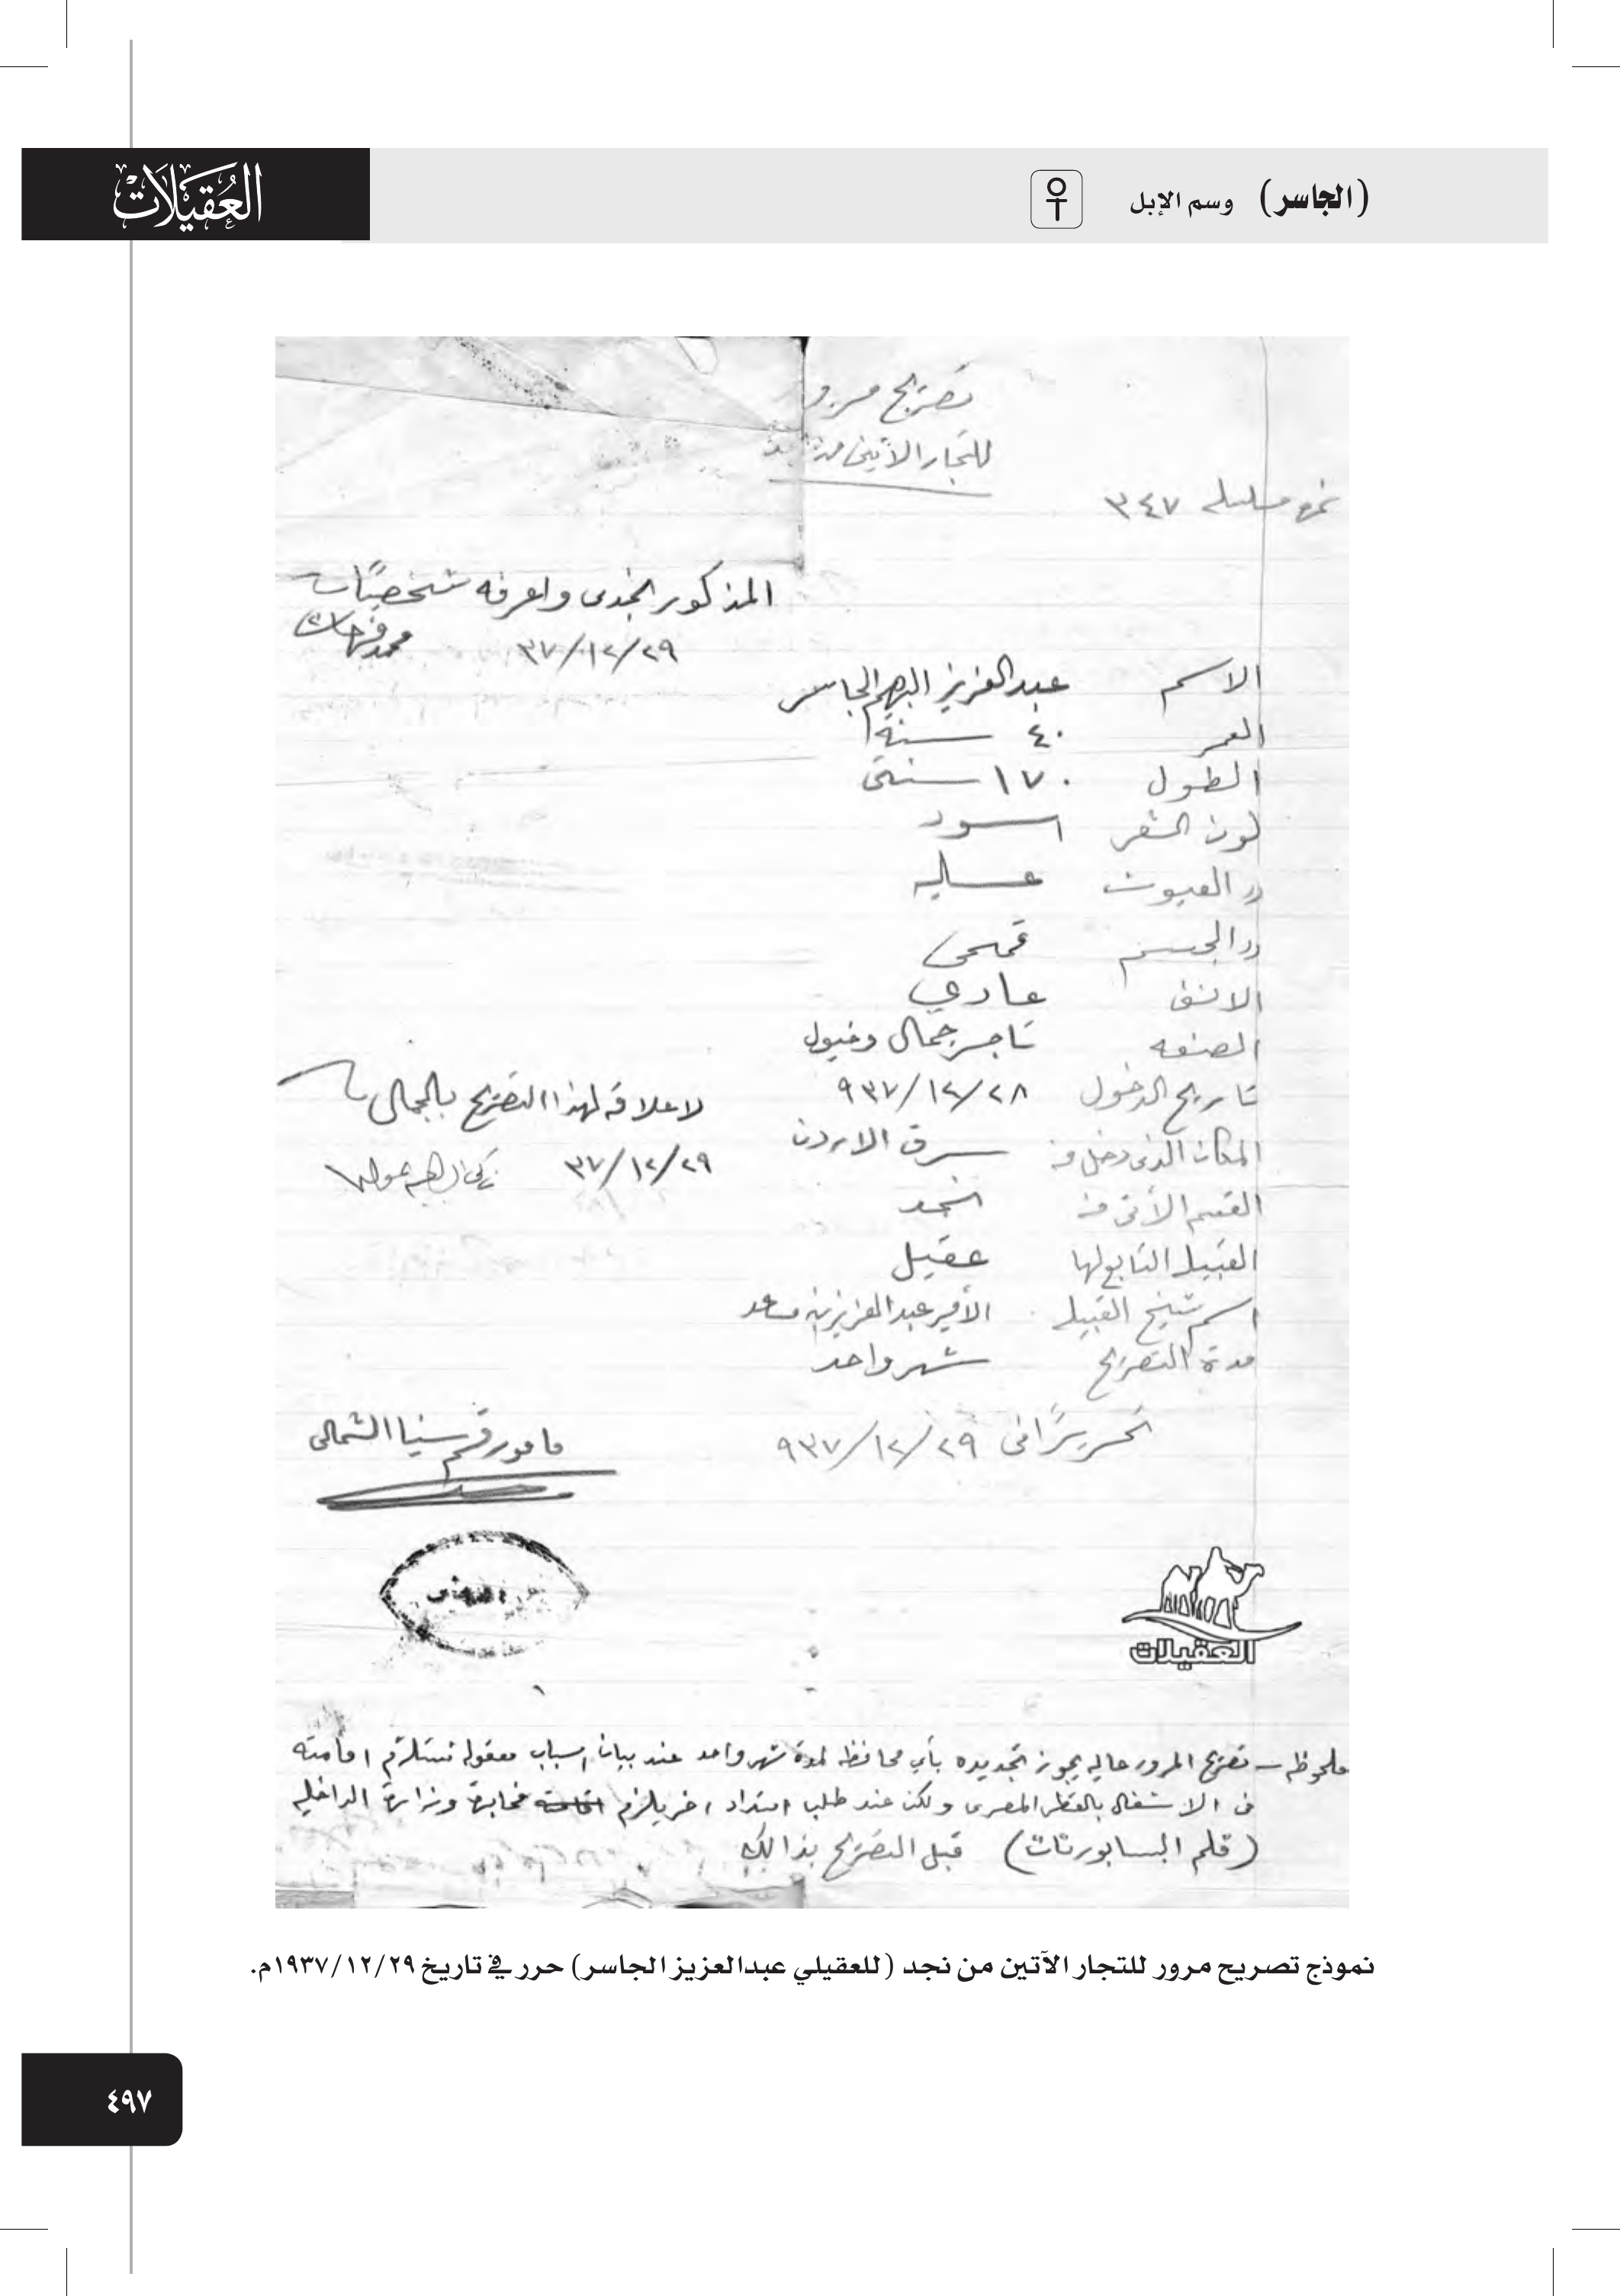 (الجاسر) وسم الإبل
العقيلات
تصريح مرور
للتجار الآتين من نجد
نمرة مسلسله ٣٤٧
المذكور نجدى واعرفه شخصيًا
٢٩/١٢/٣٧ محمد فرحات
الاسم عبدالعزيز البرهيم الجاسر
العمر ٤٠ سنة
الطول ١٧٠ سنتى
لون الشعر اسود
〃 العيون عسليه
〃 الجسم قمحى
الانف عادي
الصنعه تاجر جمال وخيول
تاريخ الدخول ٢٨/١٢/٩٣٧
لا علاقه لهذا التصريح بالجمال
المكان الذى دخل منه شرق الاردن
٢٩/١٢/٣٧
القسم الآتى منه نجد
القبيله التابع لها عقيل
اسم شيخ القبيله الأمير عبدالعزيز بن مساعد
مدة التصريح شهر واحد
تحريرًا فى ٢٩/١٢/٩٣٧
مامور قسم سينا الشمالى
العقيلات
ملحوظه - تصريح المرور حاليه يجوز تجديده بأي محافظه لمدة شهر واحد عند بيان اسباب معقوله تستلزم اقامته
فى الاشغال بالقطر المصرى ولكن عند طلب امتداد اخر يلزم مخابرة وزارة الداخليه
(قلم البسابورتات) قبل التصريح بذالك
نموذج تصريح مرور للتجار الآتين من نجد (للعقيلي عبدالعزيز الجاسر) حرر في تاريخ ١٩٣٧/١٢/٢٩م.
٤٩٧